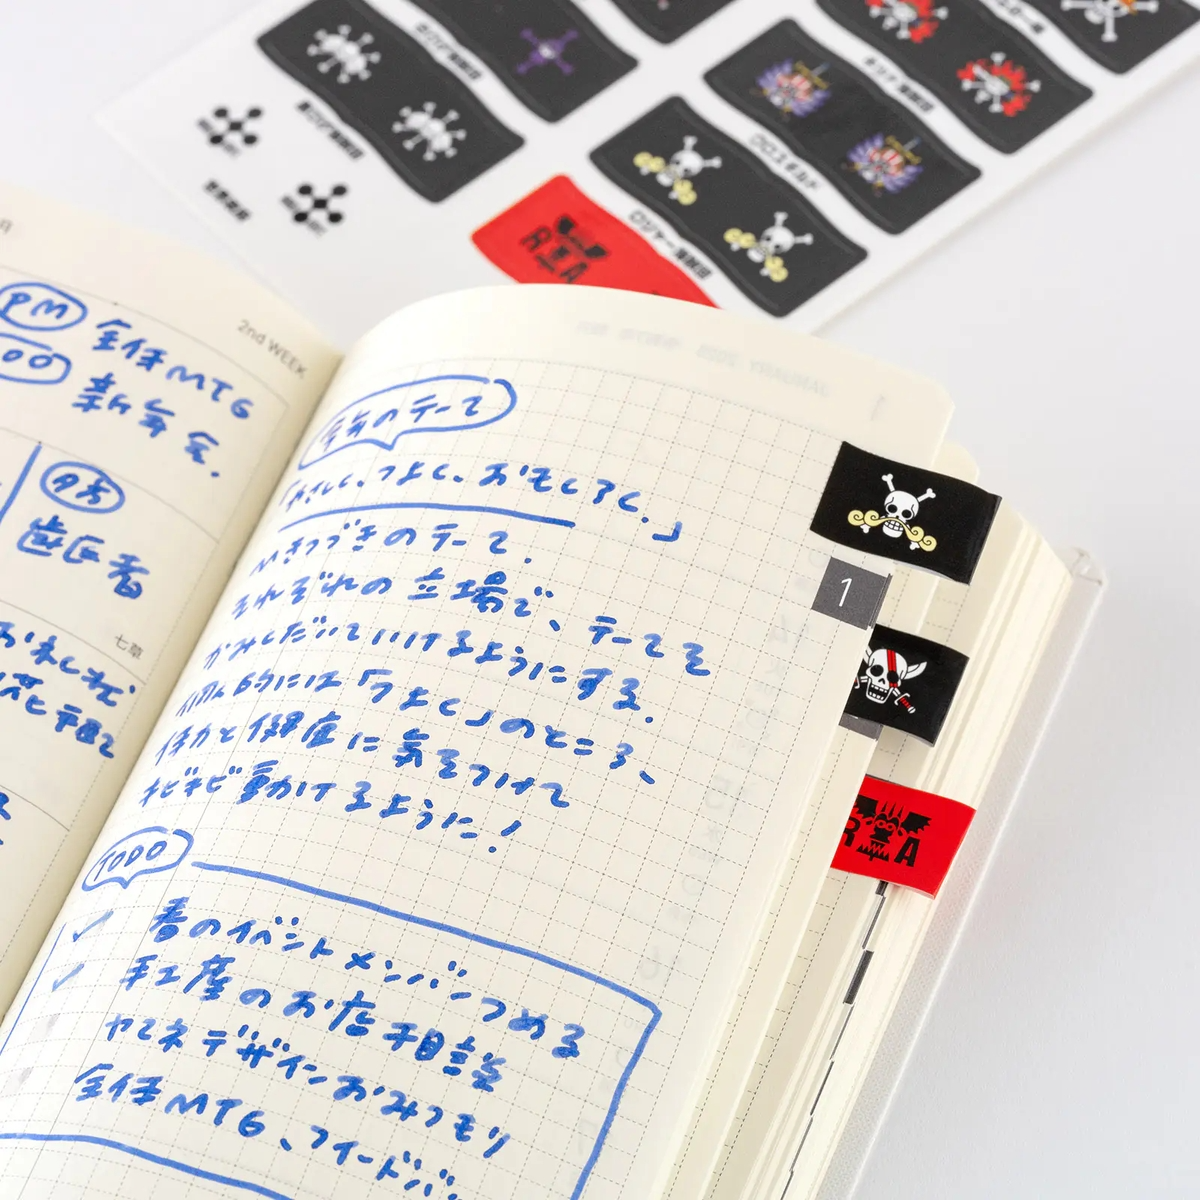 PM
全体MTG
新年会.
2nd WEEK
夕方
歯医者
七草
今年のテーマ
「やさしく、つよく、おもしろく。」
ひきつづきのテーマ.
それぞれの立場で、テーマを
かみくだいていけるようにする.
個人的には「つよく」のところ、
体力と健康に気をつけて
キビキビ動けるように!
TODO
春のイベントメンバーつめる
手工産のお店相談
ヤマネデザインおみつもり
全体MTG、フィードバ
1
RA
ロジャー海賊団
クロスギルド
キッド海賊団
RA